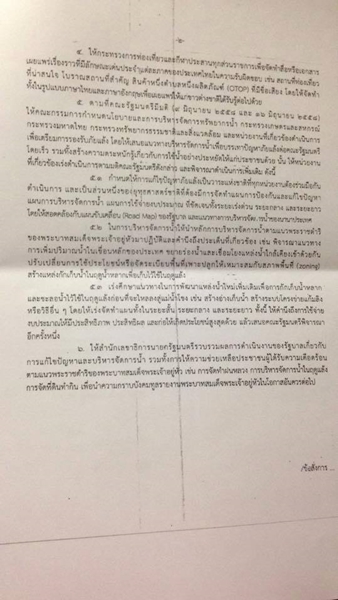 ๔. ให้กระทรวงการท่องเที่ยวและกีฬาประสานทุกส่วนราชการเพื่อจัดทำสื่อหรือเอกสาร
เผยแพร่เรื่องราวที่มีลักษณะเด่นประจำแต่ละภาคของประเทศไทยในความรับผิดชอบ เช่น สถานที่ท่องเที่ยว
ที่น่าสนใจ โบราณสถานที่สำคัญ สินค้าหนึ่งตำบลหนึ่งผลิตภัณฑ์ (OTOP) ที่มีชื่อเสียง โดยให้จัดทำ
ทั้งในรูปแบบภาษาไทยและภาษาอังกฤษเพื่อเผยแพร่ให้แก่ชาวต่างชาติได้รับรู้ต่อไปด้วย
๕. ตามที่คณะรัฐมนตรีมีมติ (๙ มิถุนายน ๒๕๕๘ และ ๑๖ มิถุนายน ๒๕๕๘)
ให้คณะกรรมการกำหนดนโยบายและการบริหารจัดการทรัพยากรน้ำ กระทรวงเกษตรและสหกรณ์
กระทรวงมหาดไทย กระทรวงทรัพยากรธรรมชาติและสิ่งแวดล้อม และหน่วยงานที่เกี่ยวข้องดำเนินการ
เพื่อเตรียมการรองรับภัยแล้ง โดยให้เสนอแนวทางบริหารจัดการน้ำเพื่อบรรเทาปัญหาภัยแล้งต่อคณะรัฐมนตรี
โดยเร็ว รวมทั้งสร้างความตระหนักรู้เกี่ยวกับการใช้น้ำอย่างประหยัดให้แก่ประชาชนด้วย นั้น ให้หน่วยงาน
ที่เกี่ยวข้องเร่งดำเนินการตามมติคณะรัฐมนตรีดังกล่าว และพิจารณาดำเนินการเพิ่มเติม ดังนี้
๕.๑ กำหนดให้การแก้ไขปัญหาภัยแล้งเป็นวาระแห่งชาติที่ทุกหน่วยงานต้องร่วมมือกัน
ดำเนินการ และเป็นส่วนหนึ่งของยุทธศาสตร์ชาติที่ต้องมีการจัดทำแผนการป้องกันและแก้ไขปัญหา
แผนการบริหารจัดการน้ำ แผนการใช้จ่ายงบประมาณ ที่ชัดเจนทั้งระยะเร่งด่วน ระยะกลาง และระยะยาว
โดยให้สอดคล้องกับแผนขับเคลื่อน (Road Map) ของรัฐบาล และแนวทางการบริหารจัดการน้ำของนานาประเทศ
๕.๒ ในการบริหารจัดการน้ำให้นำหลักการบริหารจัดการน้ำตามแนวพระราชดำริ
ของพระบาทสมเด็จพระเจ้าอยู่หัวมาปฏิบัติและคำนึงถึงประเด็นที่เกี่ยวข้อง เช่น พิจารณาแนวทาง
การเพิ่มปริมาณน้ำในเขื่อนหลักของประเทศ ขยายร่องน้ำและเชื่อมโยงแหล่งน้ำใกล้เคียงเข้าด้วยกัน
ปรับเปลี่ยนการใช้ประโยชน์หรือจัดระเบียบพื้นที่เพาะปลูกให้เหมาะสมกับสภาพพื้นที่ (zoning)
สร้างแหล่งกักเก็บน้ำในฤดูน้ำหลากเพื่อเก็บไว้ใช้ในฤดูแล้ง
๕.๓ เร่งศึกษาแนวทางในการพัฒนาแหล่งน้ำใหม่เพิ่มเติมเพื่อการกักเก็บน้ำหลาก
และชะลอน้ำไว้ใช้ในฤดูแล้งก่อนที่จะไหลลงสู่แม่น้ำโขง เช่น สร้างอ่างเก็บน้ำ สร้างระบบโครงข่ายแก้มลิง
หรือวิธีอื่น ๆ โดยให้เร่งจัดทำแผนทั้งในระยะสั้น ระยะกลาง และระยะยาว ทั้งนี้ ให้คำนึงถึงการใช้จ่าย
งบประมาณให้มีประสิทธิภาพ ประสิทธิผล และก่อให้เกิดประโยชน์สูงสุดด้วย แล้วเสนอคณะรัฐมนตรีพิจารณา
อีกครั้งหนึ่ง
๖. ให้สำนักเลขาธิการนายกรัฐมนตรีรวบรวมผลการดำเนินงานของรัฐบาลเกี่ยวกับ
การแก้ไขปัญหาและบริหารจัดการน้ำ รวมทั้งการให้ความช่วยเหลือประชาชนผู้ได้รับความเดือดร้อน
ตามแนวพระราชดำริของพระบาทสมเด็จพระเจ้าอยู่หัว เช่น การจัดทำฝนหลวง การบริหารจัดการน้ำในฤดูแล้ง
การจัดที่ดินทำกิน เพื่อนำความกราบบังคมทูลรายงานพระบาทสมเด็จพระเจ้าอยู่หัวในโอกาสอันควรต่อไป
/ข้อสั่งการ ...